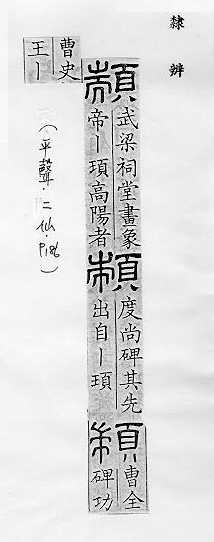 隸辨
顓
武梁祠堂畫象
帝丨頊高陽者
顓
度尚碑其先
出自丨頊
顓
曹全
碑功
曹史
王丨
(平聲·二仙·P186)